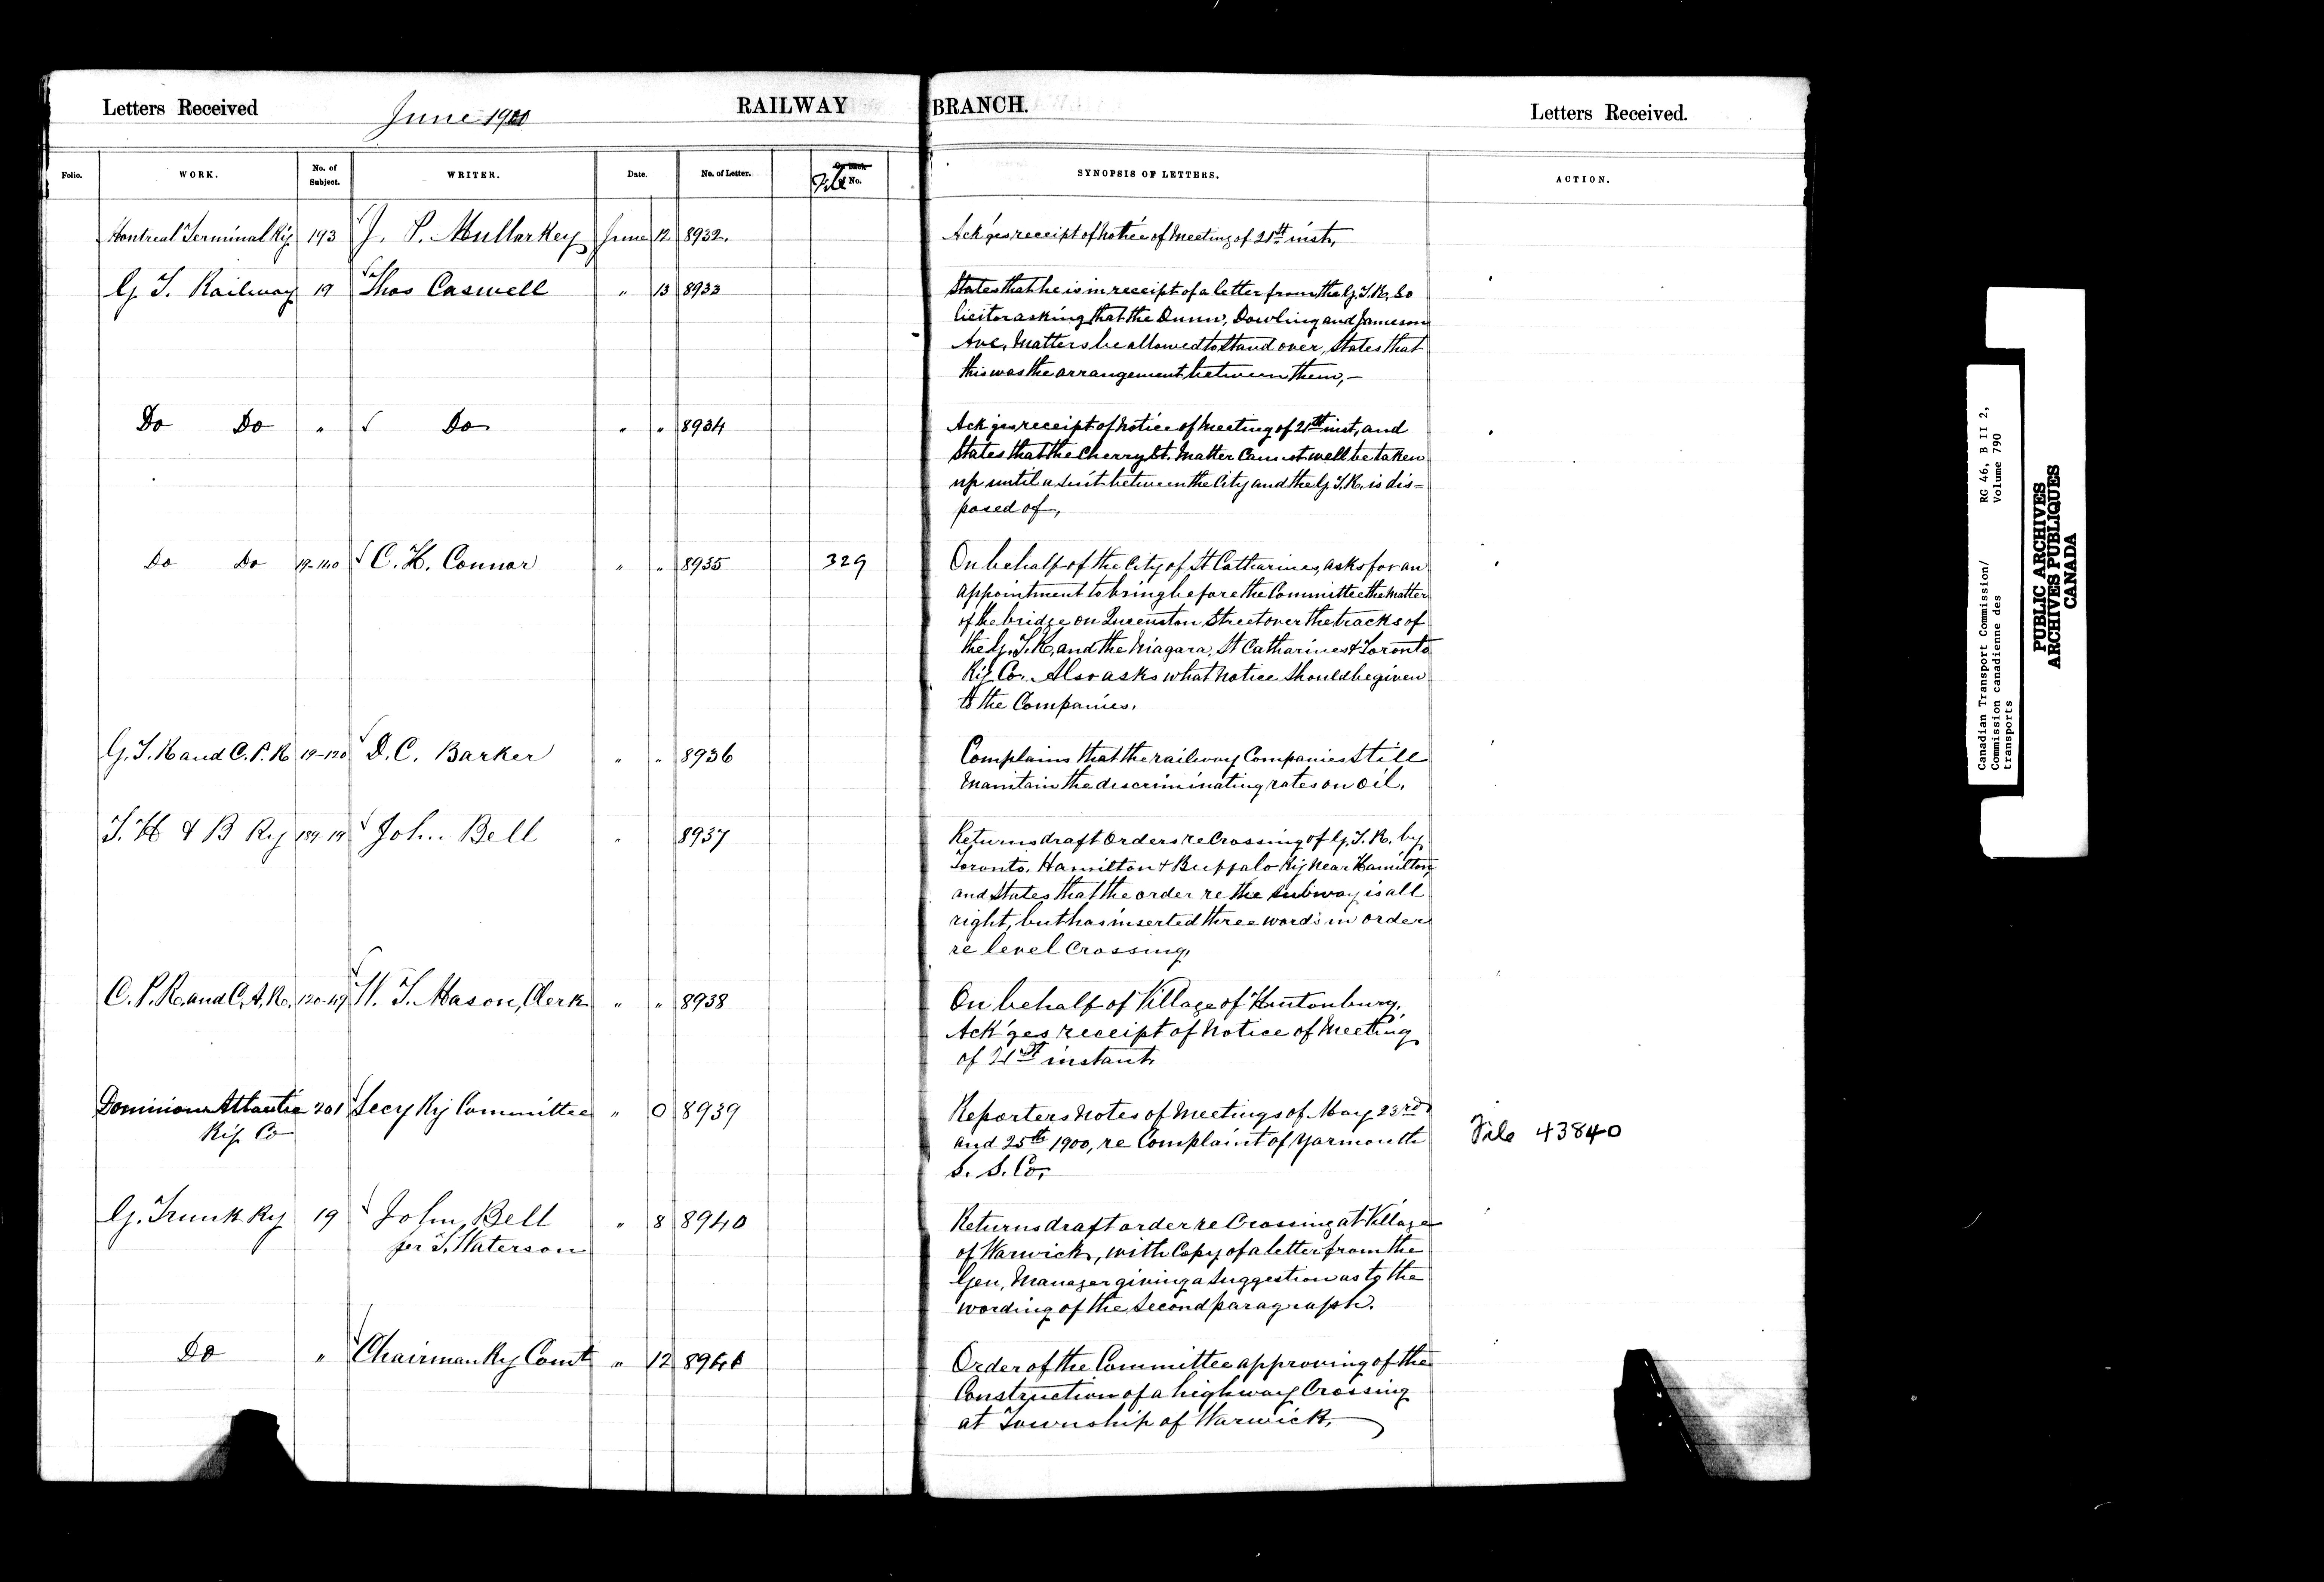 Letters Received June 1900 RAILWAY BRANCH. Letters Received.
Folio. WORK. No. of Subject. WRITER. Date. No. of Letter. File No. SYNOPSIS OF LETTERS. ACTION.
Montreal Terminal Ry 193 J. P. Mullarkey June 12 8932. Ack'ges receipt of Notice of Meeting of 21st inst,
G. T. Railway 19 Thos Caswell " 13 8933 States that he is in receipt of a letter from the G. T. R. So
licitor asking that the Dunn, Dowling and Jameson
Ave, Matters be allowed to Stand over, States that
this was the arrangement between them,—
Do Do " Do " " 8934 Ack'ges receipt of Notice of Meeting of 21st inst, and
States that the Cherry St. Matter Cannot well be taken
up until a Suit between the City and the G. T. R. is dis=
posed of,
Do Do 19-140 C. H. Connor " " 8935 329 On behalf of the City of St Catharines, asks for an
appointment to bring before the Committee the Matter
of the bridge on Queenston Street over the tracks of
the G. T. R, and the Niagara, St Catharines & Toronto
Ry Co. Also asks what Notice Should be given
to the Companies.
G. T. R and C. P. R 19-120 D. C. Barker " " 8936 Complains that the railway Companies Still
Maintain the discriminating rates on oil.
T. H & B Ry 184-19 John Bell " 8937 Returns draft Orders re Crossing of G. T. R. by
Toronto, Hamilton & Buffalo Ry Near Hamilton,
and States that the order re the Subway is all
right, but has inserted three words in order
re level Crossing,
C. P. R. and C. A. R. 120-49 W. T. Mason, Clerk " " 8938 On behalf of Village of Hintonburg,
Ack'ges receipt of Notice of Meeting
of 21st instant,
Dominion Atlantic 201 Secy Ry Committee " 0 8939 Reporters Notes of Meetings of May 23rd
Ry Co and 25th 1900, re Complaint of Yarmouth File 43840
S. S. Co,
G. Trunk Ry 19 John Bell " 8 8940 Returns draft order re Crossing at Village
per T. Waterson of Warwick, with Copy of a letter from the
Gen, Manager giving a Suggestion as to the
wording of the Second paragraph.
Do " Chairman Ry Comt " 12 8941 Order of the Committee approving of the
Construction of a highway Crossing
at Township of Warwick,
Canadian Transport Commission/ RG 46, B II 2,
Commission canadienne des Volume 790
transports
PUBLIC ARCHIVES
ARCHIVES PUBLIQUES
CANADA